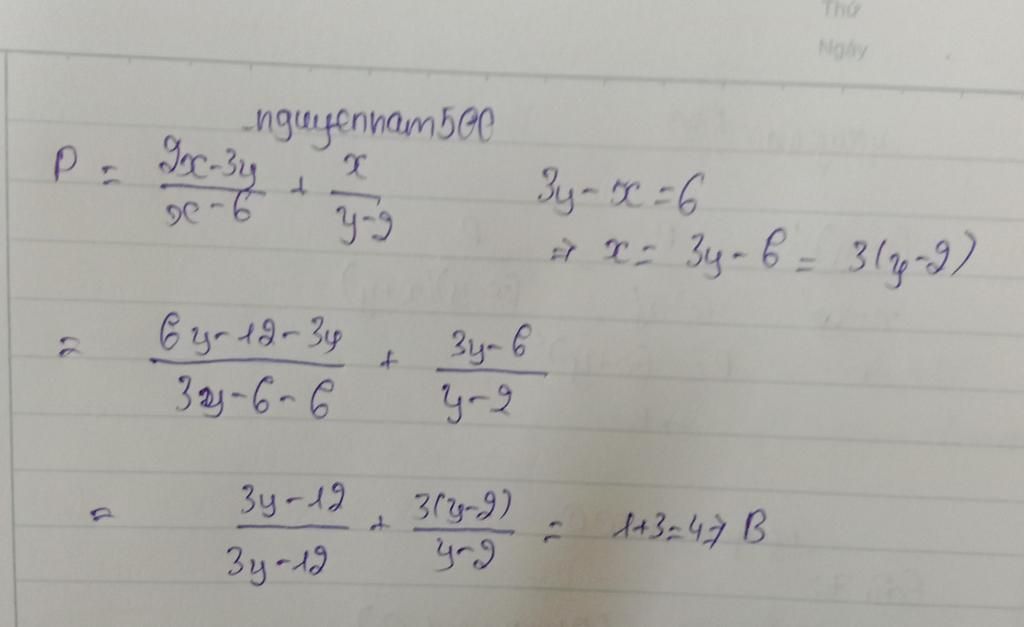 Thứ
Ngày
nguyennam500
P = \frac{2x-3y}{x-6} + \frac{x}{y-2}
3y - x = 6
⇒ x = 3y - 6 = 3(y-2)
= \frac{6y-12-3y}{3y-6-6} + \frac{3y-6}{y-2}
= \frac{3y-12}{3y-12} + \frac{3(y-2)}{y-2} = 1+3=4⇒ B